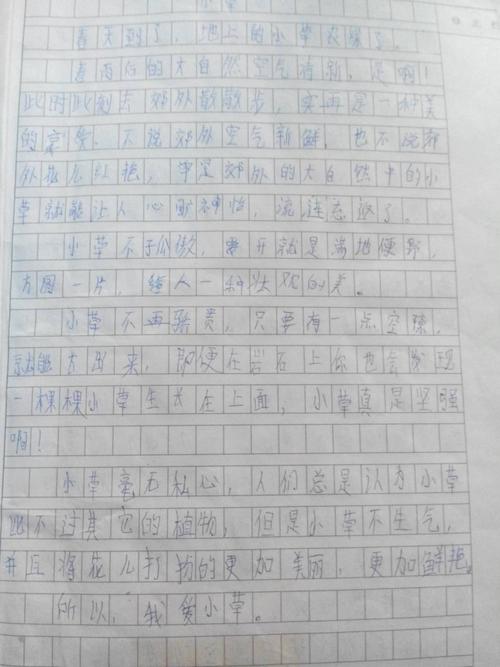 小草
春天到了，地上的小草衣绿了。
春雨后的大自然空气清新，是啊！
此时此刻去郊外散散步，实再是一种美
的享受。不说郊外空气新鲜，也不说郊
外花儿红艳，单是郊外的大自然中的小
草就能让人心旷神怡，流连忘返了。
小草不子瓜傲，开就是满地便野，
方圆一片，给人一种壮观的美。
小草不再骄贵，只要有一点空隙，
就能方出来，即便在岩石上你也会发现
一棵棵小草生长在上面，小草真是坚强
啊！
小草毫无私心，人们总是认为小草
比不过其它的植物，但是小草不生气，
并且将花儿打扮的更加美丽，更加鲜艳。
所以，我爱小草。